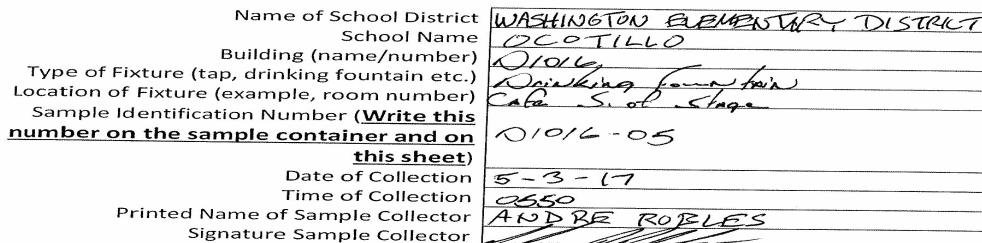 Name of School District WASHINGTON ELEMENTARY DISTRICT
School Name OCOTILLO
Building (name/number) D1016
Type of Fixture (tap, drinking fountain etc.) Drinking Fountain
Location of Fixture (example, room number) Cafe S. of Stage
Sample Identification Number (Write this
number on the sample container and on
this sheet) D1016-05
Date of Collection 5-3-17
Time of Collection 0550
Printed Name of Sample Collector ANDRE ROBLES
Signature Sample Collector